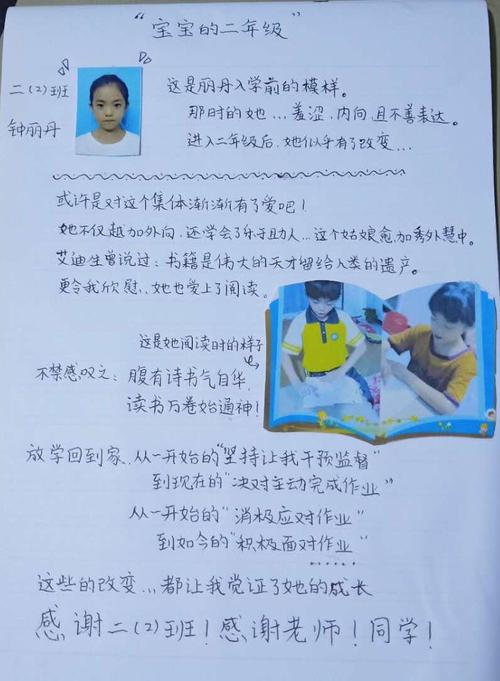 “宝宝的二年级”
二(2)班
钟丽丹
这是丽丹入学前的模样。
那时的她...羞涩,内向且不善表达。
进入二年级后,她似乎有了改变...
或许是对这个集体渐渐有了爱吧!
她不仅越加外向,还学会了乐于助人...这个姑娘愈加秀外慧中。
艾迪生曾说过:书籍是伟大的天才留给人类的遗产。
更令我欣慰、她也爱上了阅读。
这是她阅读时的样子
不禁感叹之:腹有诗书气自华,
读书万卷始通神!
放学回到家、从一开始的“坚持让我干预监督”
到现在的“决对主动完成作业”
从一开始的“消极应对作业”
到如今的“积极面对作业”
这些的改变...都让我觉证了她的成长
感谢二(2)班!感谢老师!同学!